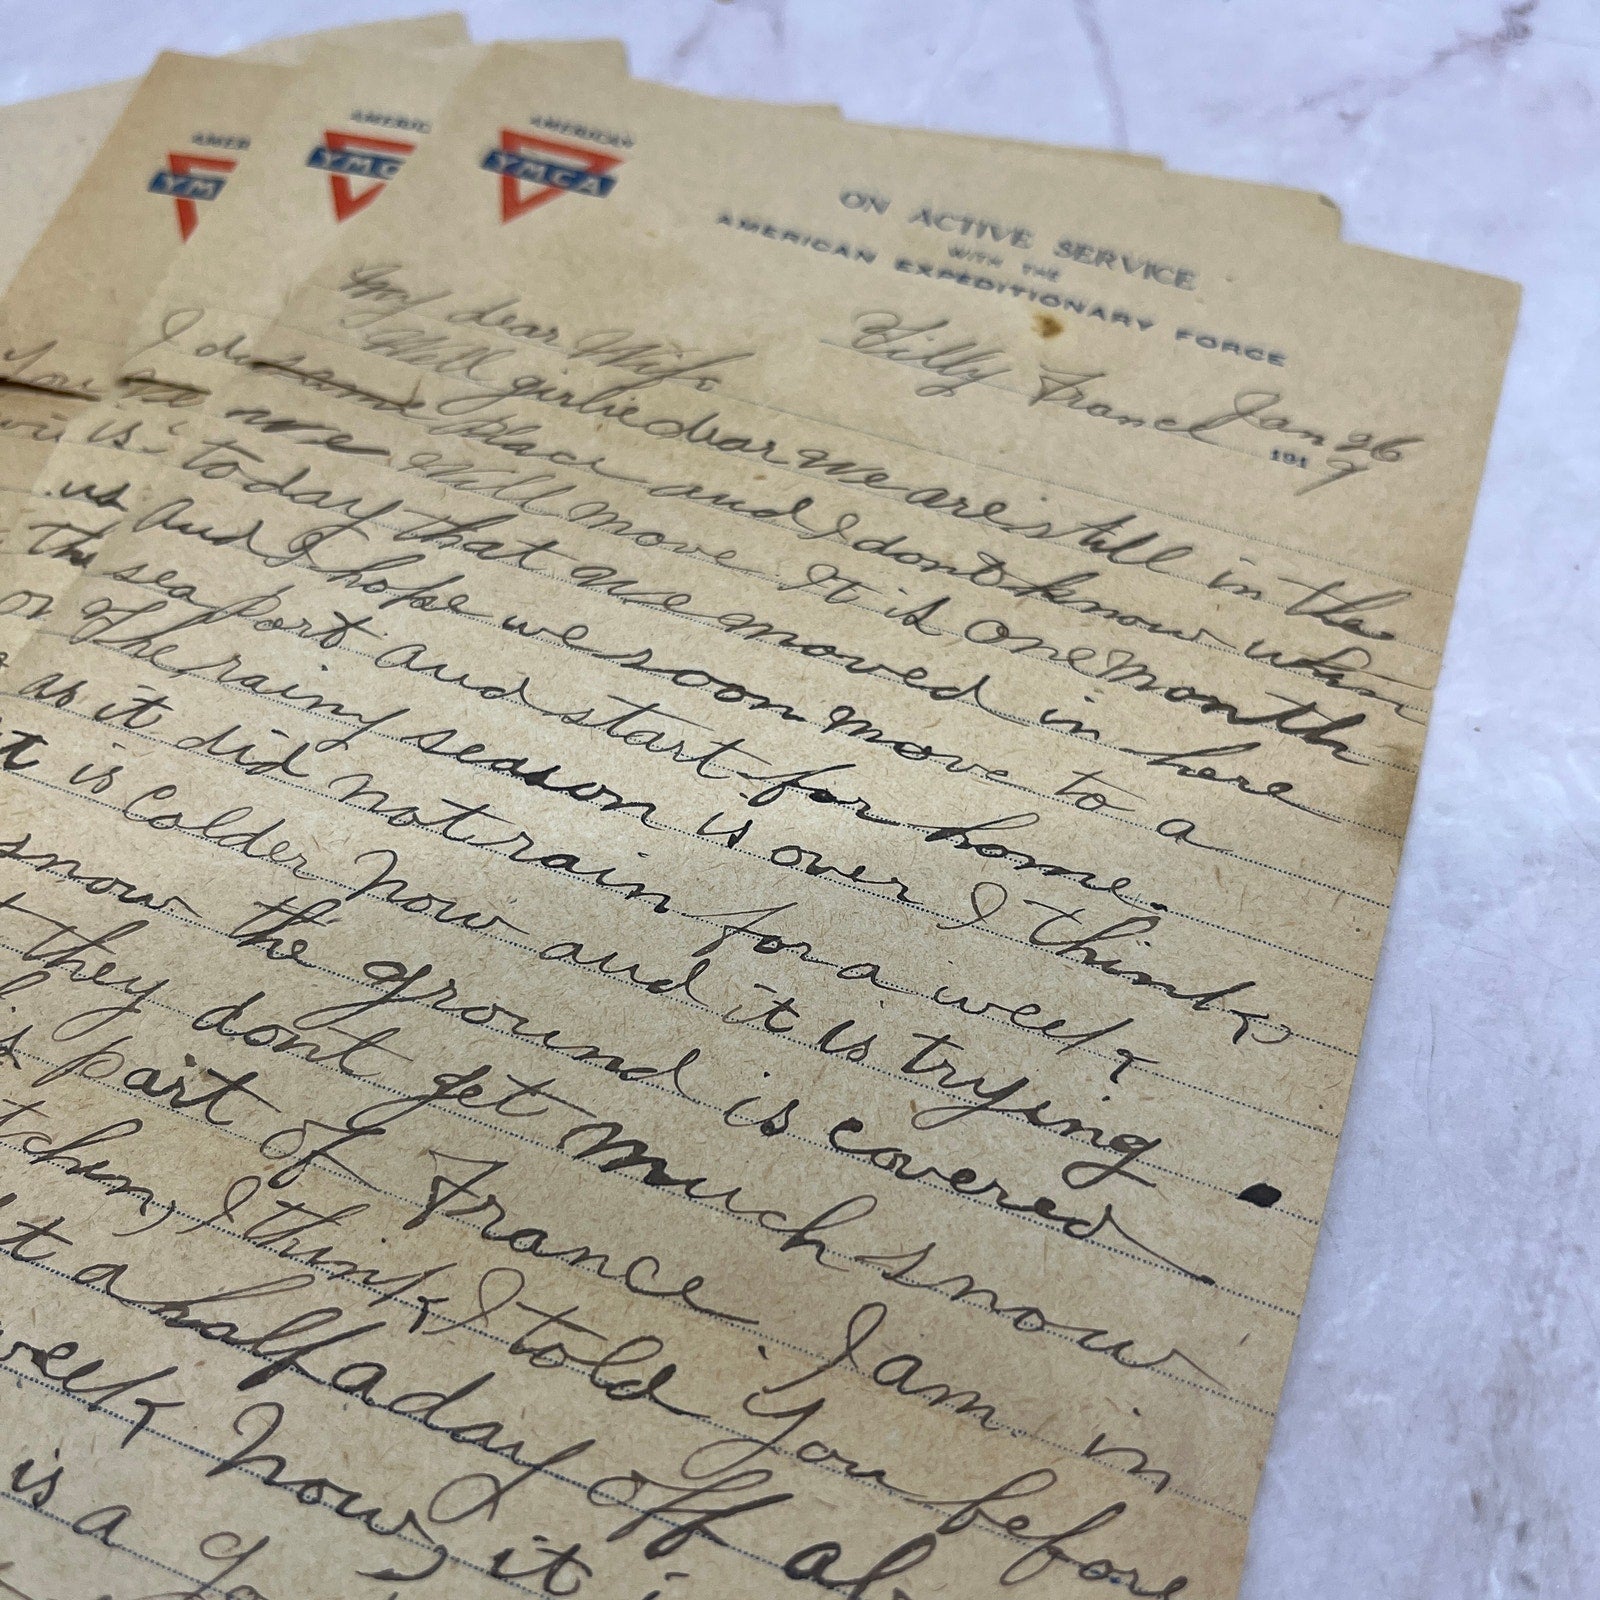 AMERICAN
YMCA
AMERIC
YMC
AMER
YM
ON ACTIVE SERVICE
WITH THE
AMERICAN EXPEDITIONARY FORCE
Tilly France Jan 26
1919
My dear Wife
Well girlie dear we are still in the
same place and I dont know when
we will move It is one month
today that we moved in here
And I hope we soon move to a
sea port and start for home.
The rainy season is over I think
as it did not rain for a week
it is Colder now and it is trying
snow the ground is covered
they dont get much snow
part of France. I am in
I think I told you before
a half a day off
week Now, it
is a
I do
You
now
is
us
The
or